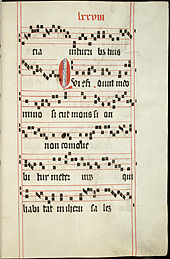 lxxviii
ria in turri bus tuis
Qui con fi dunt in do
mino si cut mons si on
non com mo ve
bi tur in eter num qui
habi tat in iheru sa lem